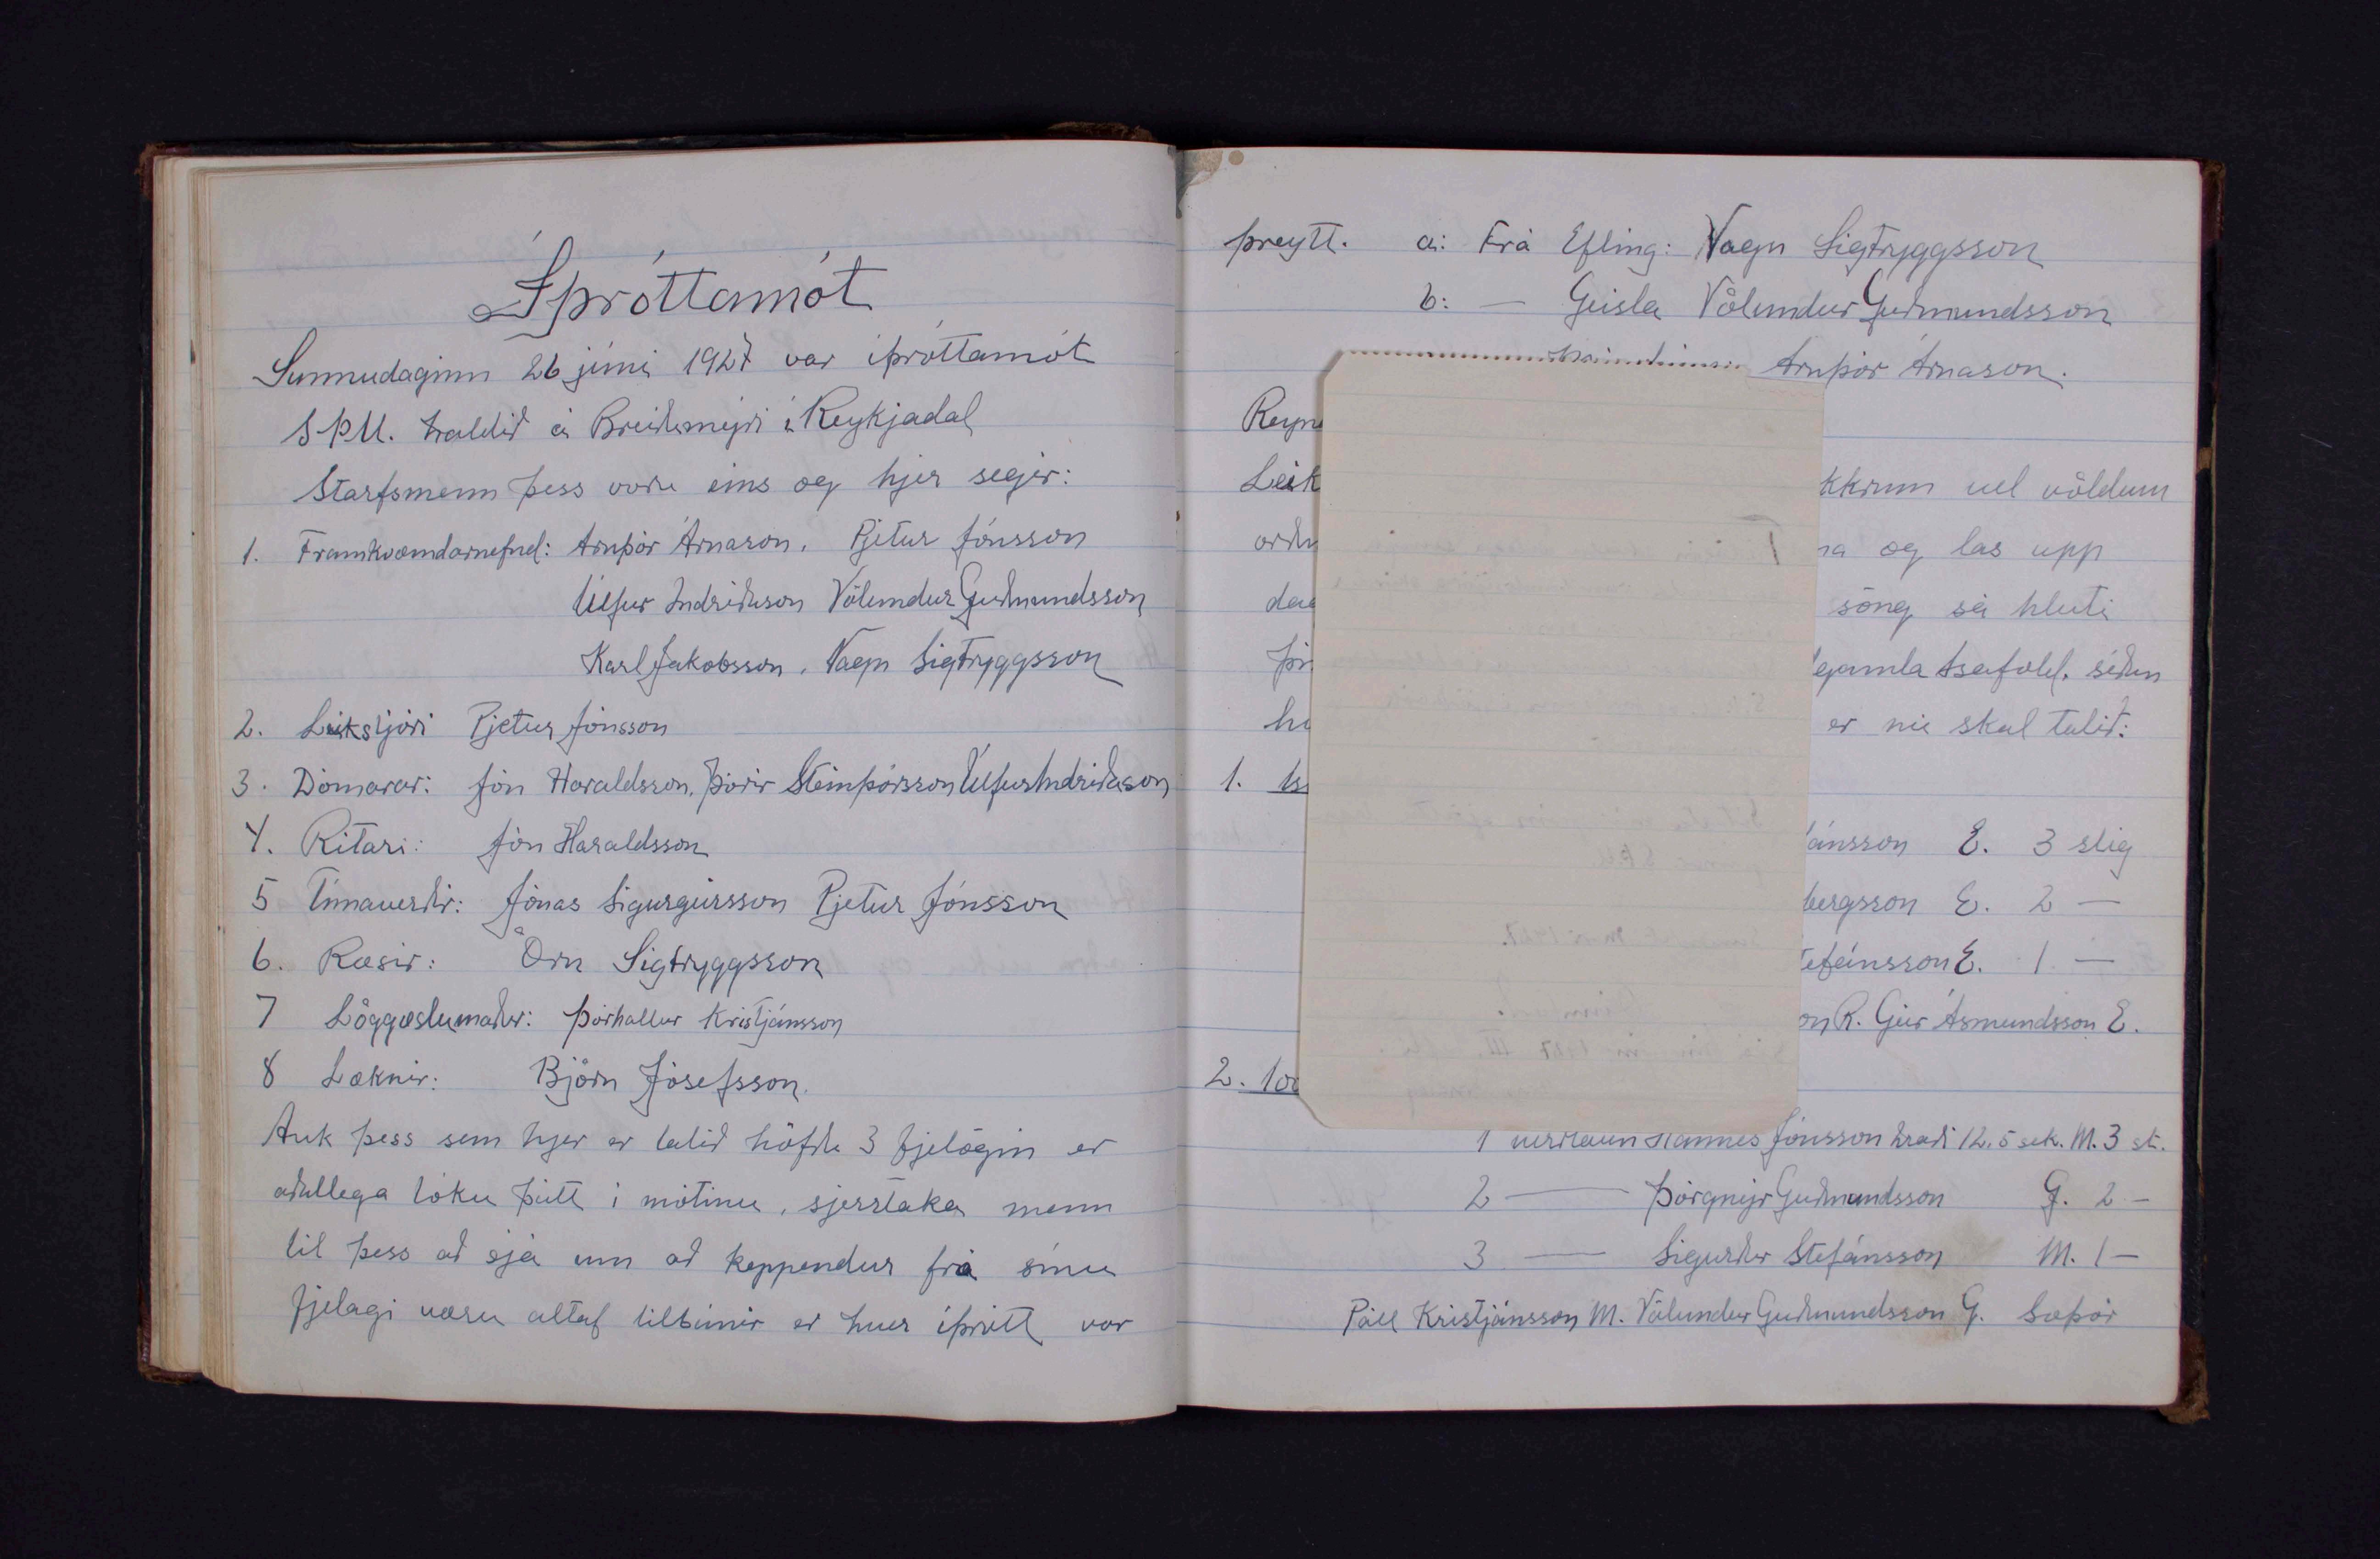 Íþróttamót
Sunnudaginn 26 júni 1927 var íþróttamót
S.Þ.U. haldið á Breiðumýri í Reykjadal
Starfsmenn þess voru eins og hjer segir:
1. Framkvæmdarnefnd: Arnþór Árnason, Pjetur Jónsson
Úlfur Indriðason Völundur Guðmundsson
Karl Jakobsson, Vagn Sigtryggsson
2. Leikstjóri Pjetur Jónsson
3. Dómarar: Jón Haraldsson, Þórir Steinþórsson Úlfur Indriðason
4. Ritari: Jón Haraldsson
5 Tímaverðir: Jónas Sigurgeirsson Pjetur Jónsson
6. Ræsir: Örn Sigtryggsson
7 Löggæslumaður: Þórhallur Kristjánsson
8 Læknir: Björn Jósefsson.
Auk þess sem hjer er talið höfðu 3 fjelögin er
aðallega tóku þátt í mótinu, sjerstaka menn
til þess að sjá um að keppendur frá sínu
fjelagi væru altaf tilbúnir er hver íþrótt var
þreytt. a: Frá Efling: Vagn Sigtryggsson
b: — Geisla Völundur Guðmundsson
Arnþór Árnason.
Reyn
Leik kkrum vel völdum
orðu na og las upp
dag söng sá hluti
þin gamla Ísafold, síðan
ha er nú skal talið:
1.
ánsson E. 3 stig
bergsson E. 2 —
tefánsson E. 1 —
on R. Geir Ásmundsson E.
2. 100
1 verðlaun Hannes Jónsson hraði 12,5 sek. M. 3 st.
2 — Þórgnýr Guðmundsson G. 2 –
3 — Sigurður Stefánsson M. 1 –
Páll Kristjánsson M. Völundur Guðmundsson G. Sæþór